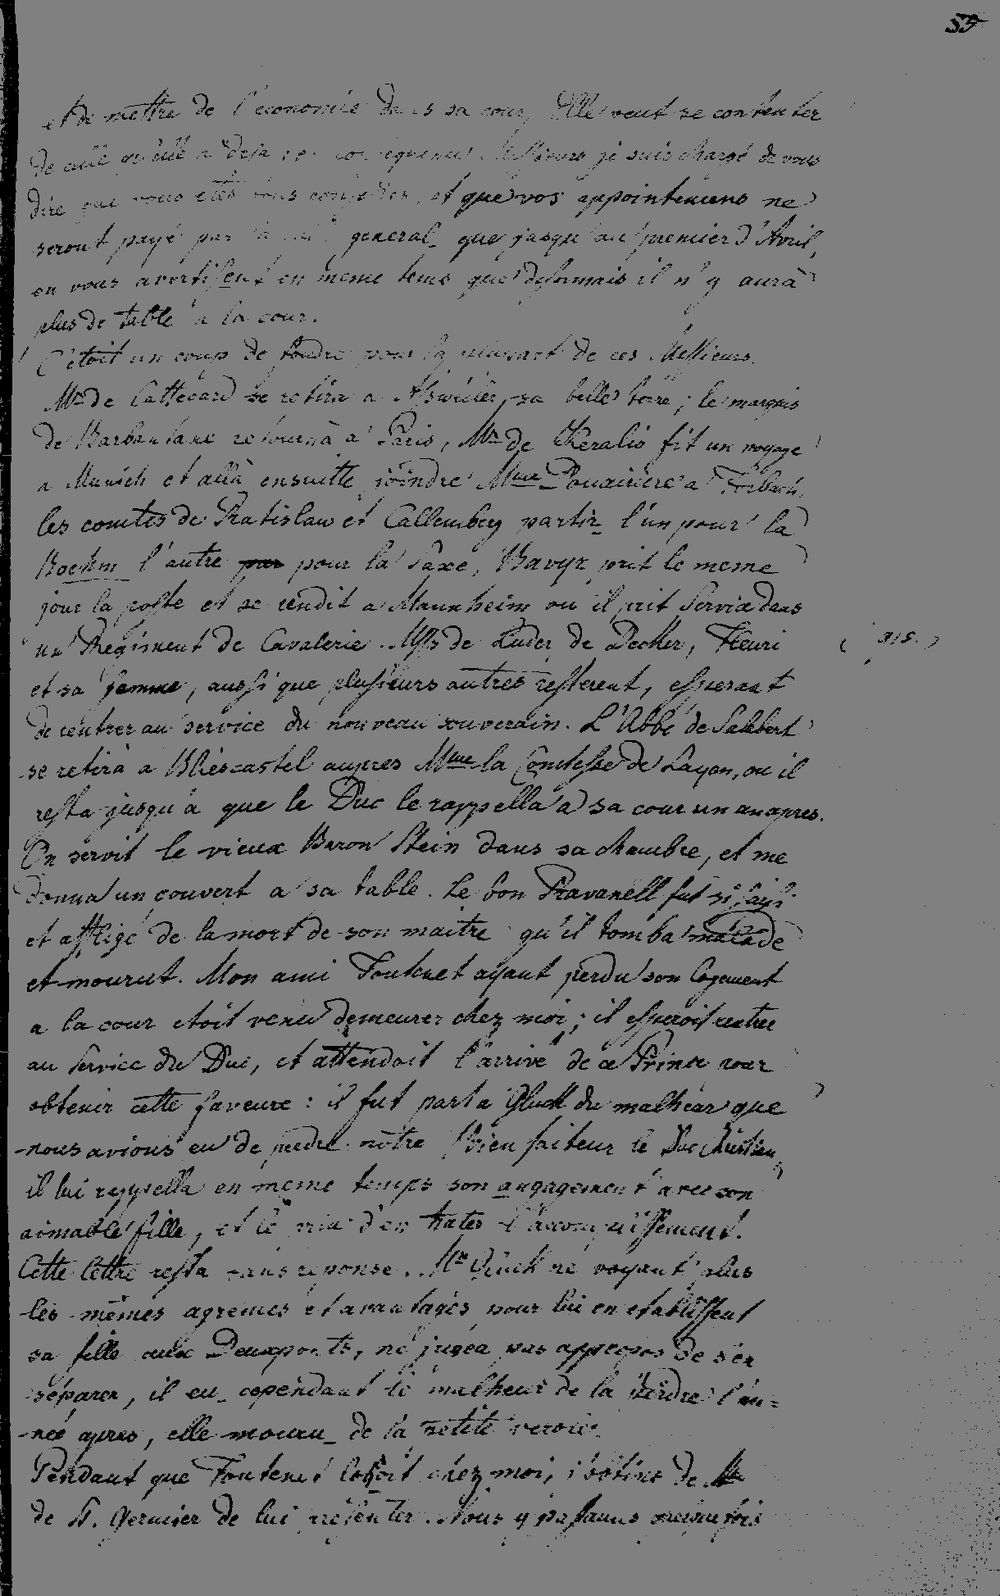 59
et de mettre de l'economie dans sa cour, Elle veut se contenter
de celle qu'elle a deja, par consequence Messieurs je suis chargé de vous
dire que vous etes tous congediés, et que vos appointemens ne
seront payé par la general que jusqu'au premier d'Avril,
on vous avertissent en meme tems que desormais il n'y aurà
plus de table a la cour.
C'etoit un coup de foudre pour la plupart de ces Messieurs.
Mr de Cattecard se retira a sa belle terre; le marquis
de Barbantane retournà à Paris, Mr de Keralio fit un voyage
a Munich et allà ensuitte joindre Mme Douairiere a Forbach,
les comtes de Pratislaw et Callemberg partir l'un pour la
Boehm l'autre pour la Saxe, Bavyr prit le meme
jour la poste et se rendit a Mannheim ou il prit Service dans
un Regiment de Cavalerie. Mrs de Luder de Decker, Fleuri
( 315. )
et sa femme, aussi que plusieurs autres resterent, esperant
de rentrer au service du nouveau souverain. L'Abbé de Salabert
se retirà a Bliescastel aupres Mme la Comtesse de Layen, ou il
resta jusqu'a que le Duc le rappella a sa cour un an apres.
On servit le vieux Baron Stein dans sa chambre, et me
donna un couvert a sa table. Le bon Pravanell fut si saisi
et affligé de la mort de son maitre qu'il tomba malade
et mourut. Mon ami Fontenet ayant perdu son logement
a la cour etoit venu demeurer chez moi; il esperoit rentrer
au Service du Duc, et attendoit l'arrivé de ce Prince pour
obtenir cette faveure: il fut part a Gluck du malheur que
nous avions eu de perdre nôtre bienfaiteur le Duc Christian,
il lui rappella en meme temps son angagement avec son
aimable fille, et le pria d'en hater l'accomplissement.
Cette lettre resta sans reponse. Mr Gluck ne voyant plus
les mêmes agremes et avantages pour lui en etablissent
sa fille aux Deuxponts, ne jugea pas appropos de s'en
separer, il eu cependant le malheur de la perdre l'an=
née apres, elle mouru de la petite verole.
Pendant que Fontenet logoit chez moi, j'obtins de Mr
de St. Vernier de lui presenter. Nous y passames quelque fois